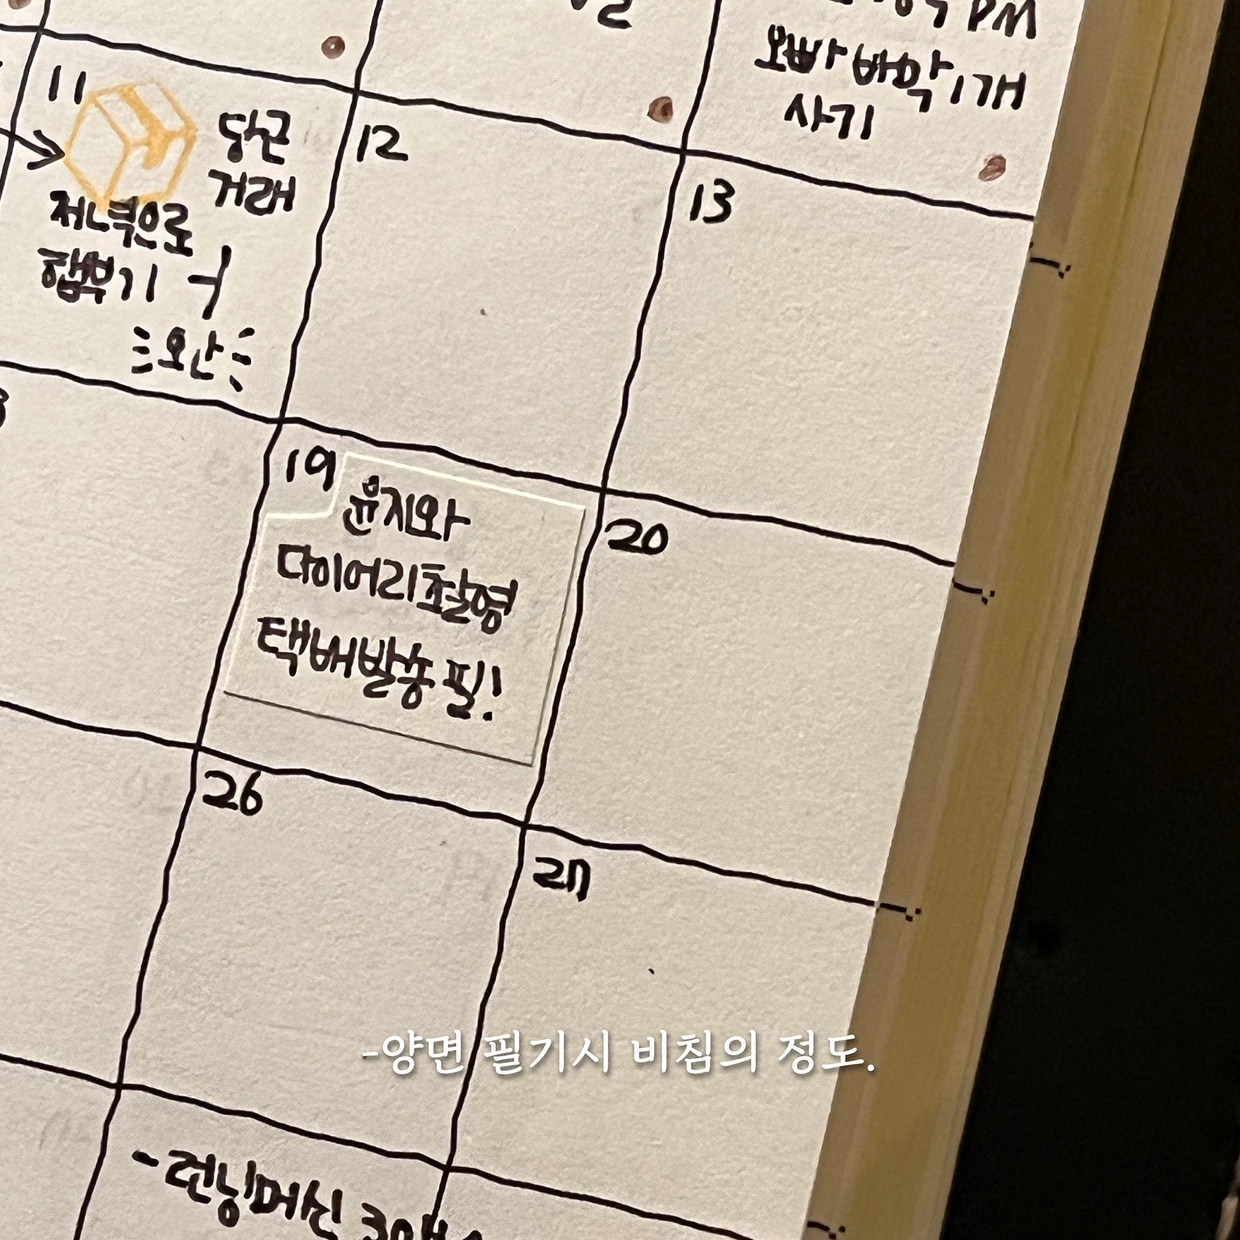 PM
오빠 바막 1개
사기
11
당근
거래
저녁으로
햄부기
오난
12
13
19
윤지와
다이어리촬영
택배발송 필!
20
26
27
-양면 필기시 비침의 정도.
-런닝머신 30